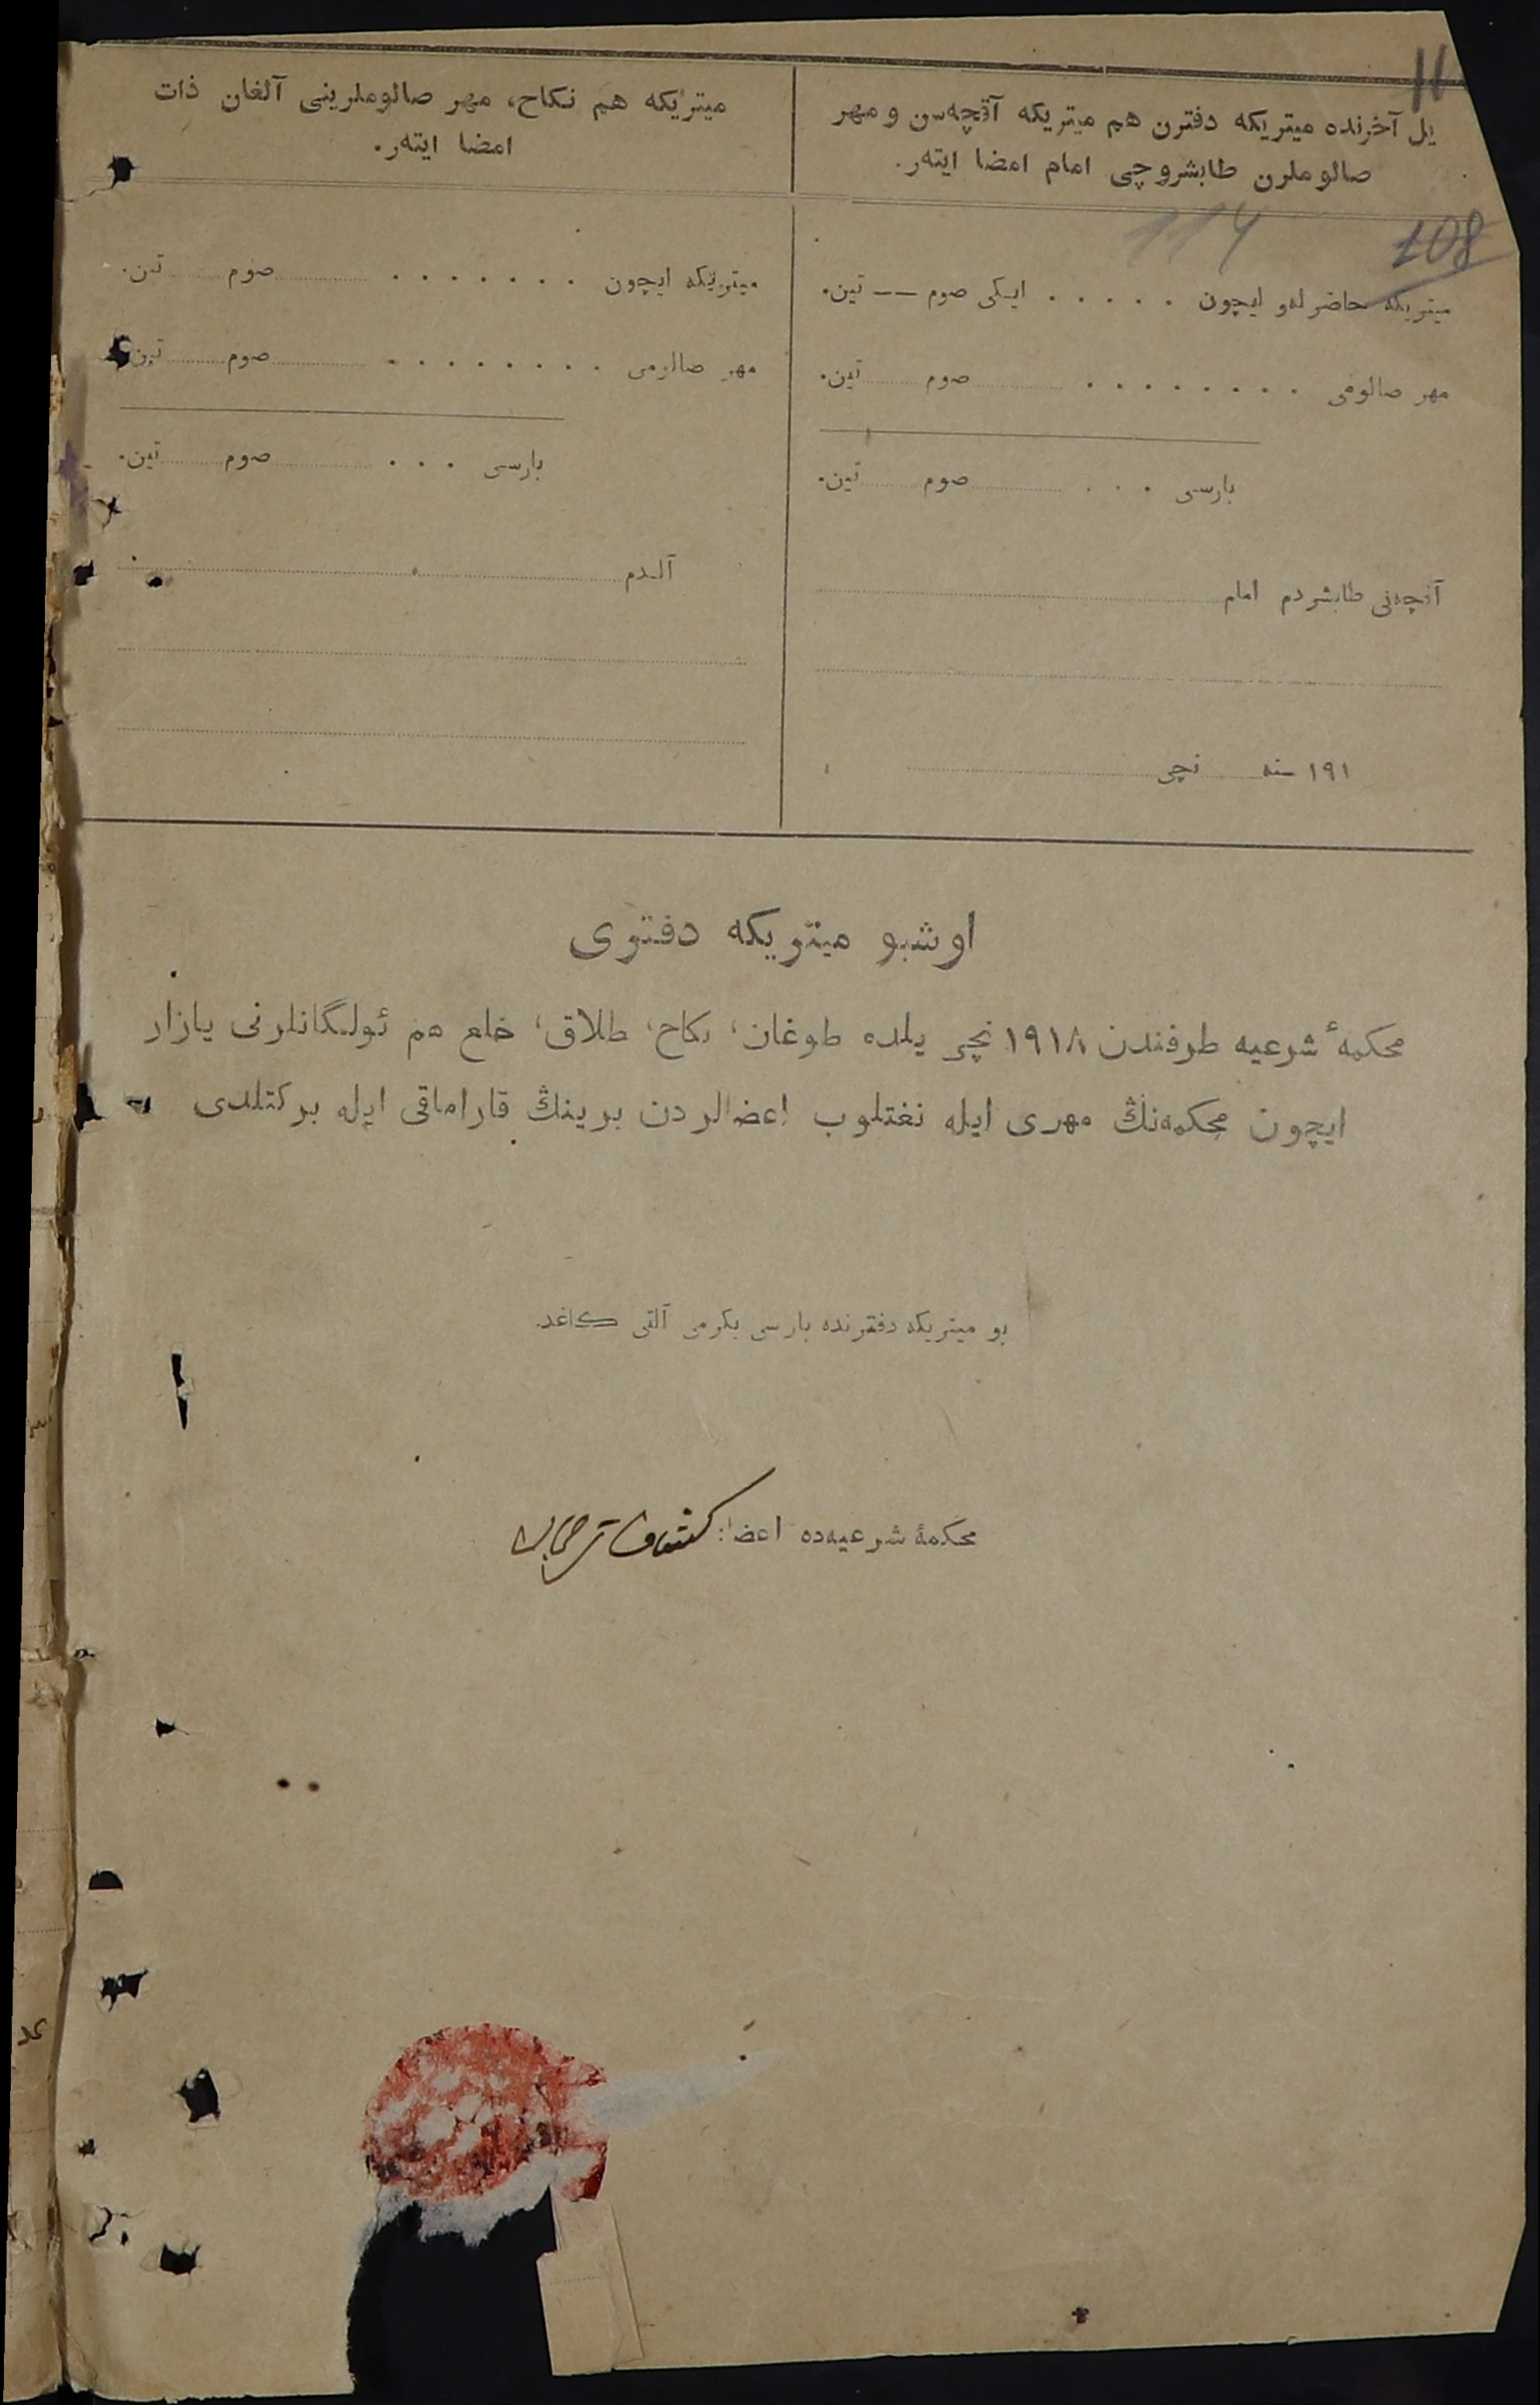 11
یل آخرنده میتریکه دفترن هم میتریکه آقچه‌سن و مهر
صالوملرن طابشروچی امام امضا ایته‌ر.
114
108
میتریکه حاضرله‌و ایچون . . . . . ایکی صوم —— تین.
مهر صالومی . . . . . . . . صوم تین.
بارسی . . . صوم تین.
آقچه‌نی طابشردم امام
۱۹۱ سنه نچی
میتریکه هم نکاح، مهر صالوملرینی آلغان ذات
امضا ایته‌ر.
میتریکه ایچون . . . . . . . صوم تین.
مهر صالومی . . . . . . . . صوم تین.
بارسی . . . صوم تین.
آلدم
اوشبو میتریکه دفتری
محکمهٔ شرعیه طرفندن ۱۹۱۸ نچی یلده طوغان، نکاح، طلاق، خلع هم ئولگانلرنی یازار
ایچون محکمه‌نڭ مهری ایله نغتلوب اعضالردن برینڭ قاراماقی ایله برکتلدی
بو میتریکه دفترنده بارسی یکرمی آلتی کاغد.
محکمهٔ شرعیه‌ده اعضا: کشاف ترجمانی